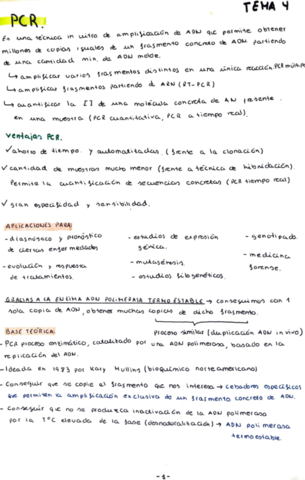 TEMA 4
PCR.
Es una técnica in vitro de amplificación de ADN que permite obtener
millones de copias iguales de un fragmento concreto de ADN, partiendo
de una cantidad min. de ADN molde.
↳ amplificar varios fragmentos distintos en una única reacción PCR múltiple
↳ amplificar fragmentos partiendo de ARN (RT-PCR)
↳ cuantificar la [ ] de una molécula concreta de AN presente
en una muestra (PCR cuantitativa, PCR a tiempo real).
Ventajas PCR.
✓ ahorro de tiempo y automatizadas (frente a la clonación)
✓ cantidad de muestras mucho menor (frente a técnica de hibridación)
Permite la cuantificación de secuencias concretas (PCR tiempo real)
✓ gran especificidad y sensibilidad.
APLICACIONES PARA:
- diagnóstico y pronóstico de ciertas enfermedades
- estudios de expresión génica.
- genotipado.
- evolución y respuesta de tratamientos.
- mutagénesis.
- estudios filogenéticos.
- medicina forense.
GRACIAS A LA ENZIMA ADN POLIMERASA TERMOESTABLE → conseguimos con 1
sola copia de ADN, obtener muchas copias de dicho fragmento.
BASE TEÓRICA:
proceso similar (duplicación ADN in vivo)
- PCR proceso enzimático, catalizado por una ADN polimerasa, basado en la
replicación del ADN.
- Ideada en 1983 por Kary Mullins (bioquímico norteamericano)
- Conseguir que se copie el fragmento que nos interesa → cebadores específicos
que permiten la amplificación exclusiva de un fragmento concreto de ADN.
- Conseguir que no se produzca inactivación de la ADN polimerasa
por la Tª ºC elevada de la fase (desnaturalización) → ADN polimerasa
termoestable.
-1-